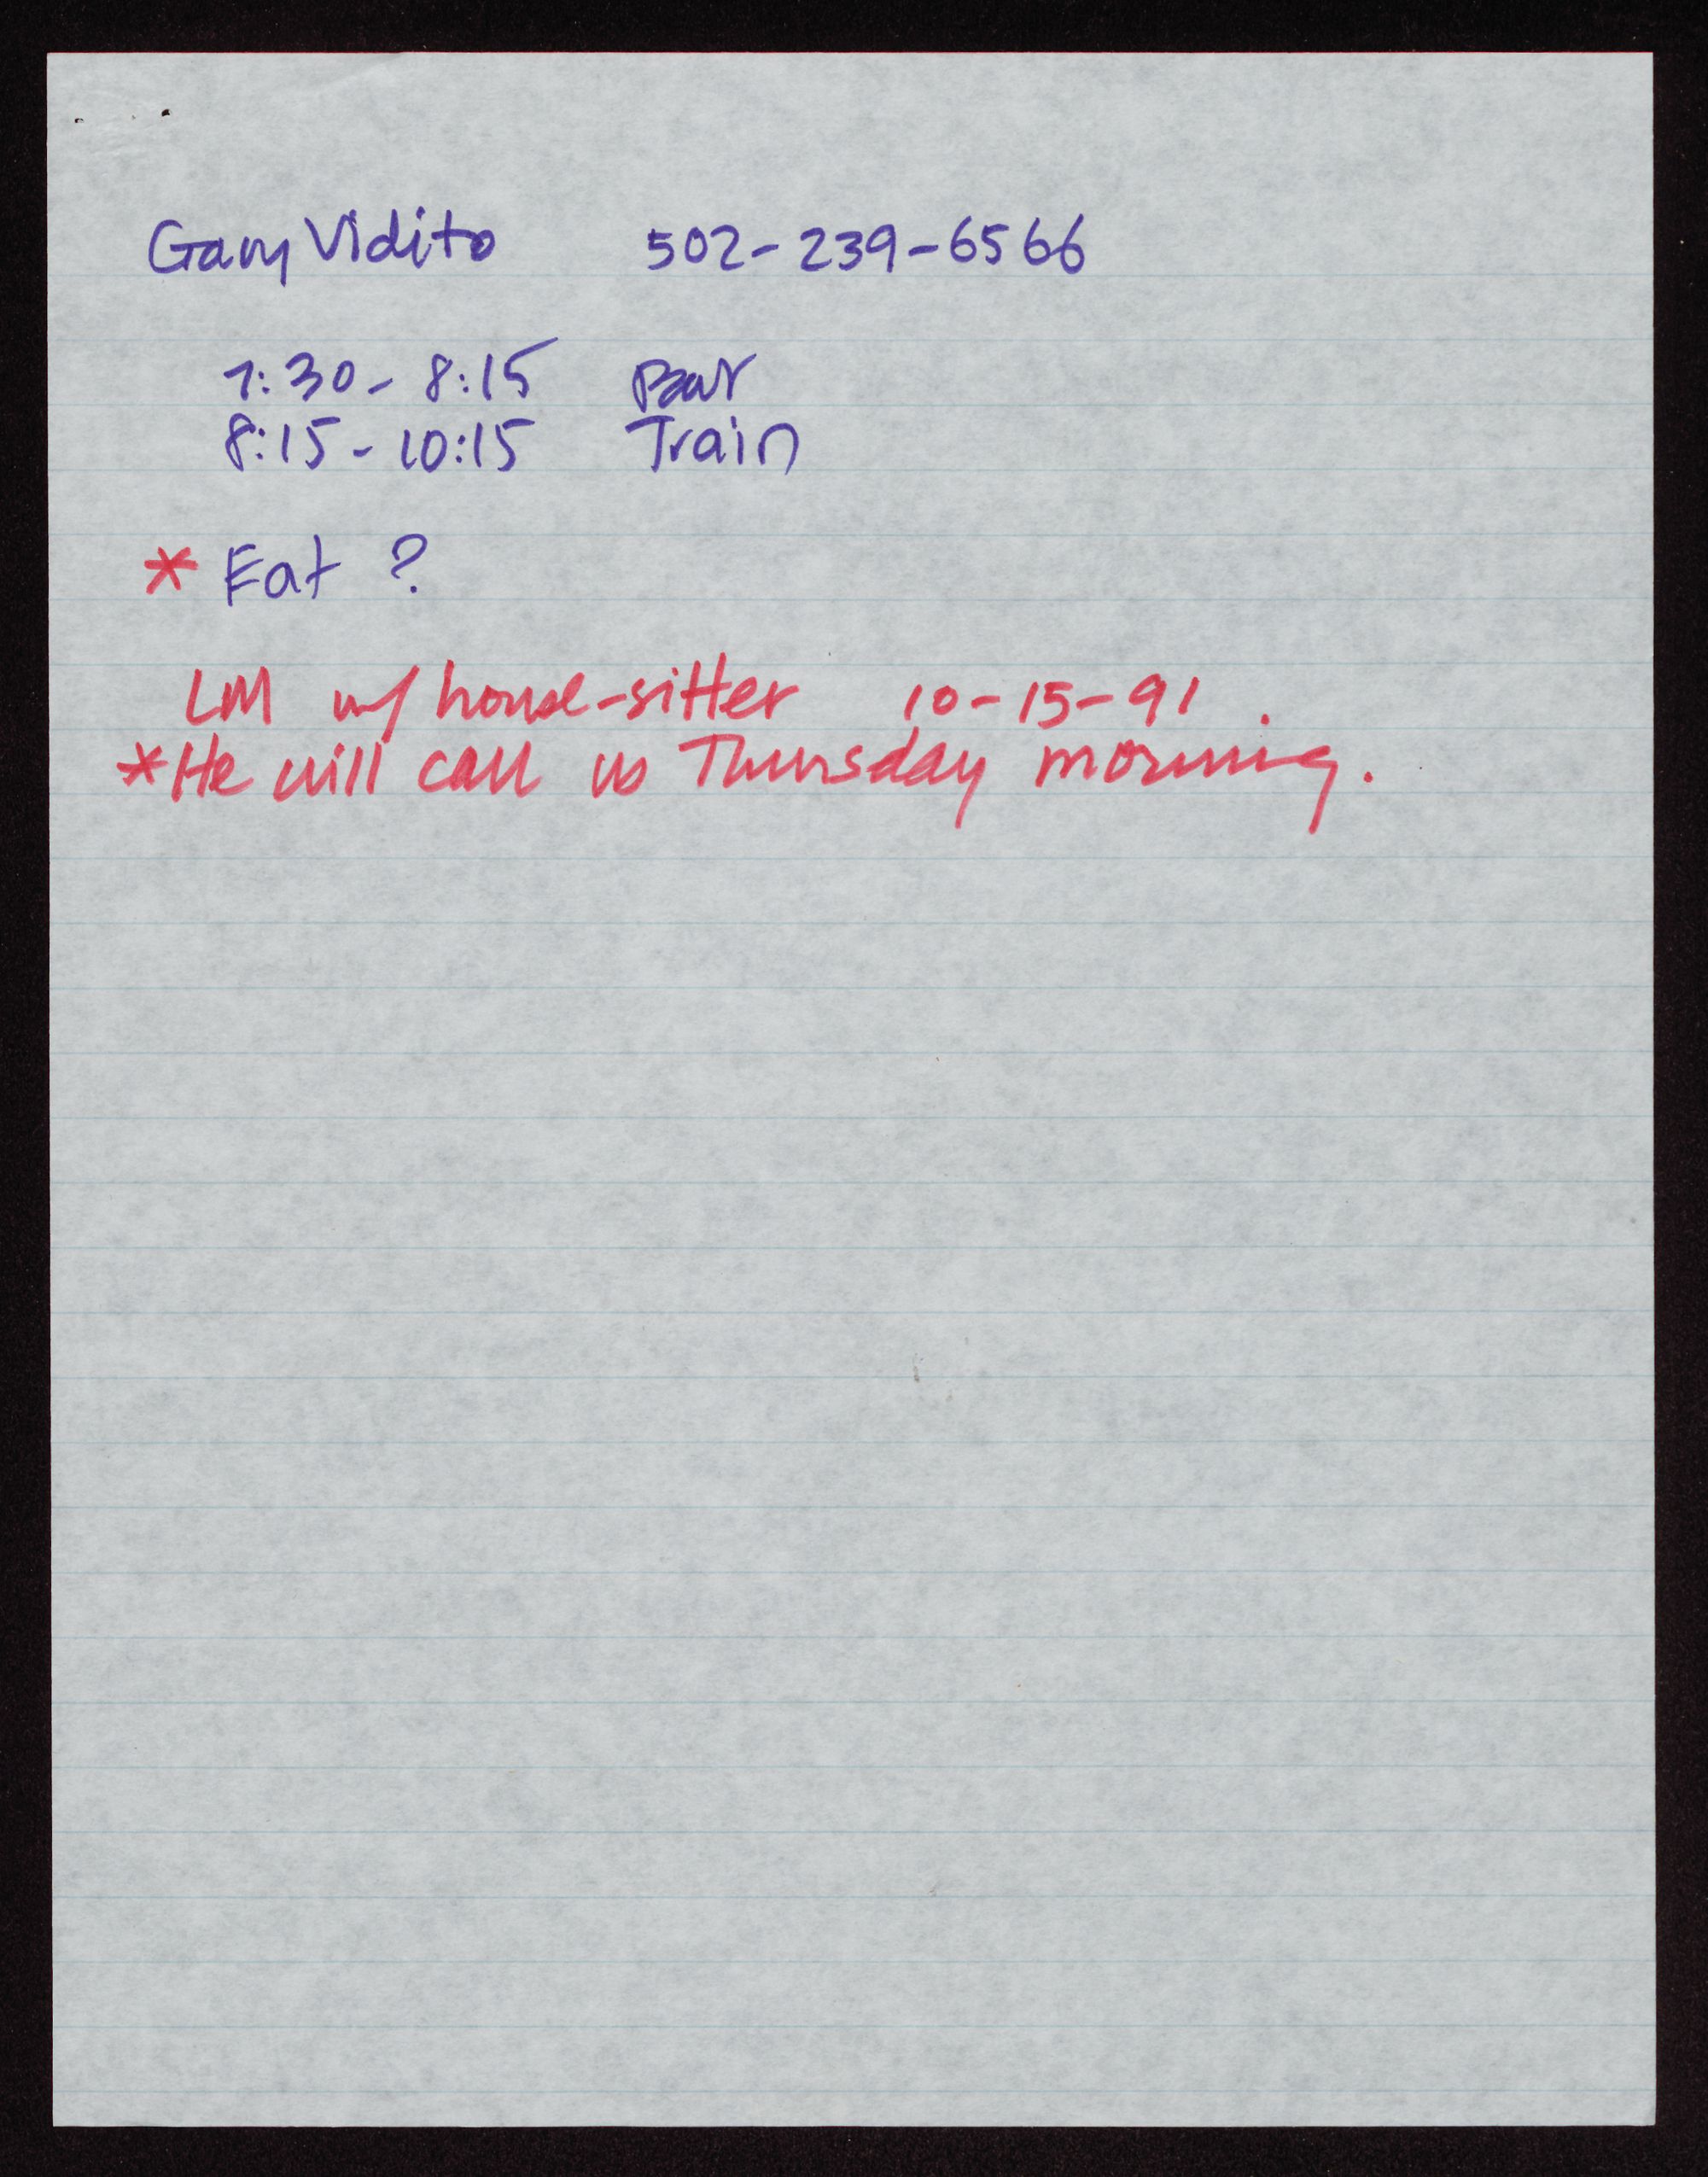 Gary Vidito 502-239-6566
7:30 - 8:15 Bar
8:15 - 10:15 Train
* Eat ?
LM w/ house-sitter 10-15-91 .
* He will call us Thursday morning.